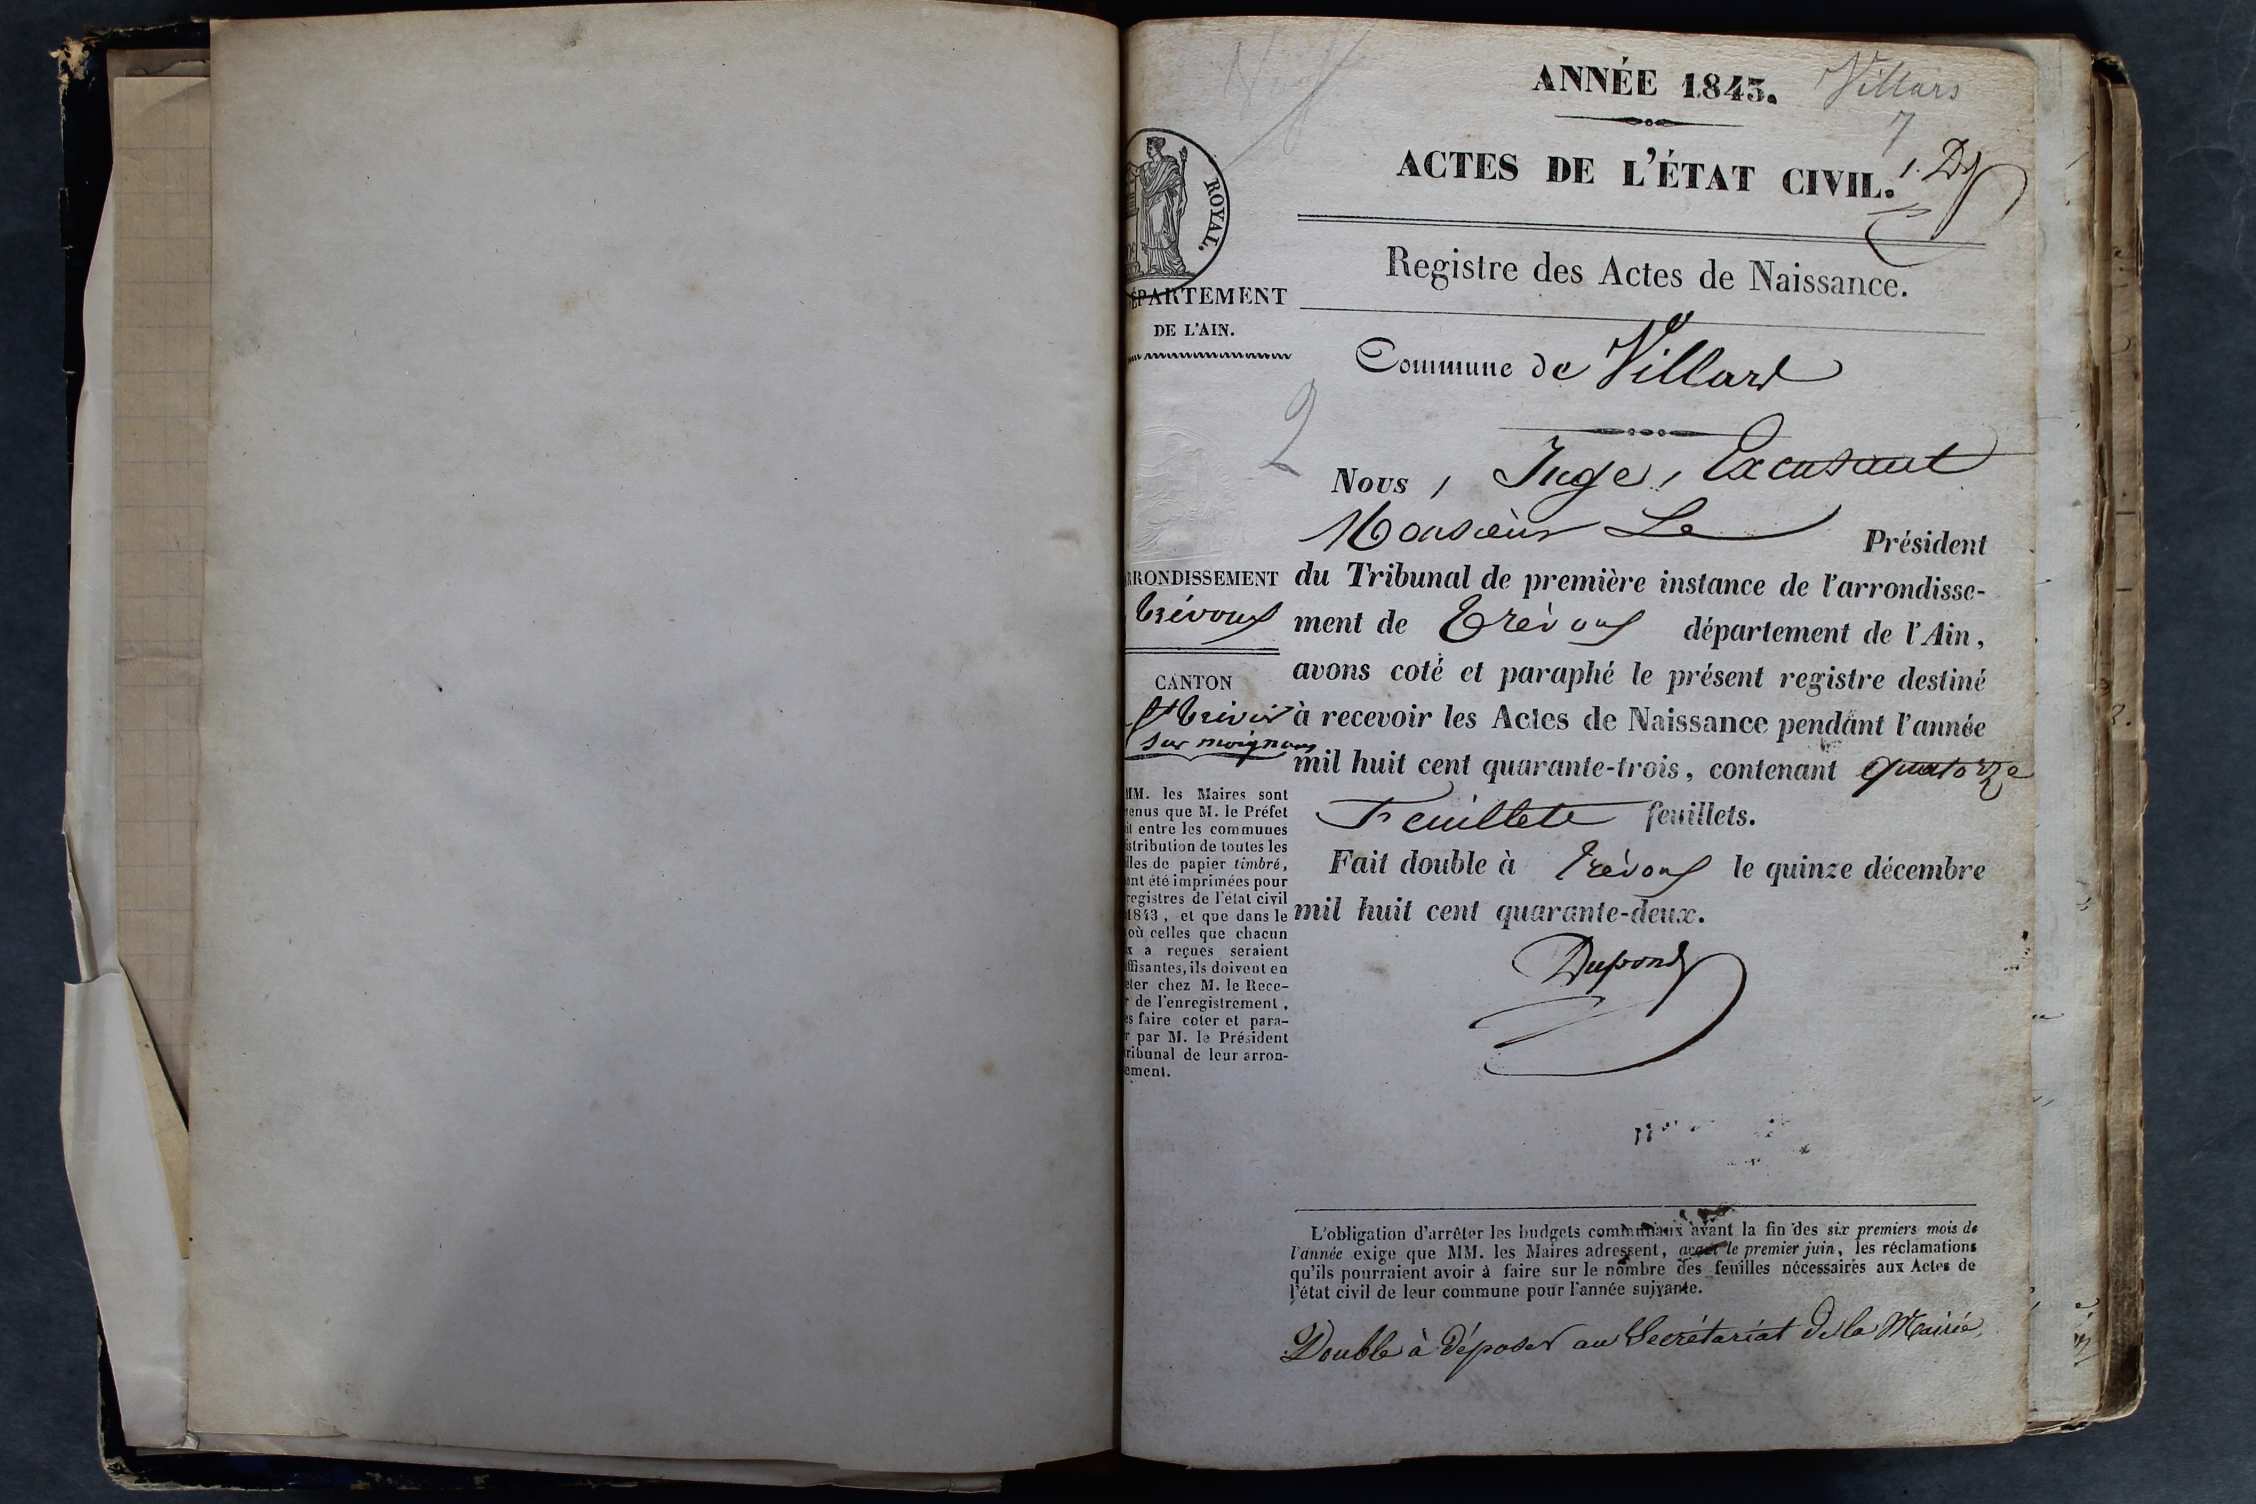 ANNÉE 1843.
Villars
7
1. D
ACTES DE L'ÉTAT CIVIL.
ROYAL.
Registre des Actes de Naissance.
ÉPARTEMENT
DE L'AIN.
Commune de Villars
2
Nous, Juge, Excusant
Monsieur Le Président
du Tribunal de première instance de l'arrondisse-
ment de Trévoux département de l'Ain,
avons coté et paraphé le présent registre destiné
à recevoir les Actes de Naissance pendant l'année
mil huit cent quarante-trois, contenant quatorze
Feuillets feuillets.
Fait double à Trévoux le quinze décembre
mil huit cent quarante-deux.
Dupond
RRONDISSEMENT
Trévoux
CANTON
St Trivier
sur moignans
MM. les Maires sont
venus que M. le Préfet
it entre les communes
istribution de toutes les
lles de papier timbré,
ont été imprimées pour
registres de l'état civil
1843, et que dans le
où celles que chacun
x a reçues seraient
ffisantes, ils doivent en
eter chez M. le Rece-
r de l'enregistrement,
es faire coter et para-
r par M. le Président
ribunal de leur arron-
ement.
L'obligation d'arrêter les budgets communaux avant la fin des six premiers mois de
l'année exige que MM. les Maires adressent, avant le premier juin, les réclamations
qu'ils pourraient avoir à faire sur le nombre des feuilles nécessaires aux Actes de
l'état civil de leur commune pour l'année suivante.
Double à déposer au Secrétariat de la Mairie